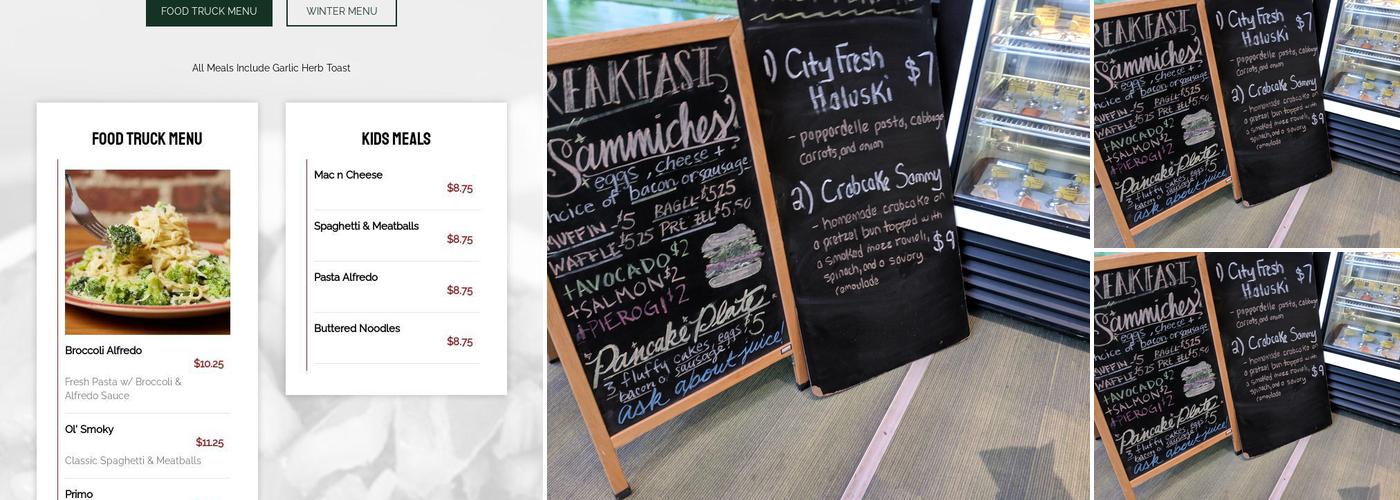 FOOD TRUCK MENU
WINTER MENU
All Meals Include Garlic Herb Toast
FOOD TRUCK MENU
Broccoli Alfredo
$10.25
Fresh Pasta w/ Broccoli &
Alfredo Sauce
Ol' Smoky
$11.25
Classic Spaghetti & Meatballs
Primo
KIDS MEALS
Mac n Cheese
$8.75
Spaghetti & Meatballs
$8.75
Pasta Alfredo
$8.75
Buttered Noodles
$8.75
REAKFAST
Sammiches
eggs, cheese +
hoice of bacon or sausage
UFFIN - $5 BAGEL - $5.25
WAFFLE - $5.25 PRETZEL $5.50
+AVOCADO $2
+SALMON $2
+PIEROGI $2
Pancake Plate
3 fluffy cakes, eggs, $5
bacon or sausage
ask about juice!
1) City Fresh
Haluski $7
- pappordelle pasta, cabbage
carrots, and onion
2) Crabcake Sammy
- homemade crabcake on
a pretzel bun topped with
a smoked mozz ravioli, $9
spinach, and a savory
remoulade
REAKFAST
Sammiches
eggs, cheese +
hoice of bacon or sausage
+AVOCADO $2
+SALMON $2
+PIEROGI $2
Pancake Plate
ask about juice!
1) City Fresh
Haluski $7
- pappordelle pasta, cabbage
carrots, and onion
2) Crabcake Sammy
- homemade crabcake on
a pretzel bun topped with
a smoked mozz ravioli, $9
spinach, and a savory
remoulade
REAKFAST
Sammiches
eggs, cheese +
hoice of bacon or sausage
+AVOCADO $2
+SALMON $2
+PIEROGI $2
Pancake Plate
ask about juice!
1) City Fresh
Haluski $7
- pappordelle pasta, cabbage
carrots, and onion
2) Crabcake Sammy
- homemade crabcake on
a pretzel bun topped with
a smoked mozz ravioli, $9
spinach, and a savory
remoulade